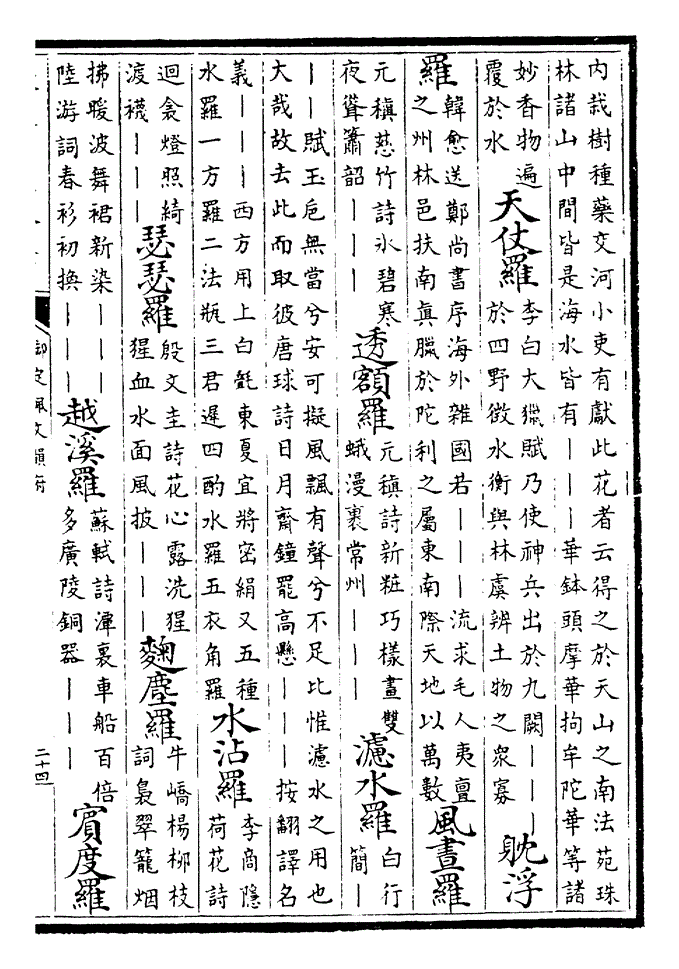 内栽樹種藥交河小吏有獻此花者云得之於天山之南法苑珠
林諸山中間皆是海水皆有丨丨丨華鉢頭摩華拘牟陀華等諸
妙香物遍
覆於水
天仗羅
李白大獵賦乃使神兵出於九闕丨丨丨
於四野徵水衡與林虞辨土物之衆寡
躭浮
羅
韓愈送鄭尚書序海外雜國若丨丨丨流求毛人夷亶
之州林邑扶南眞臘於陀利之屬東南際天地以萬數
風晝羅
元稹慈竹詩氷碧寒
夜聳簫韶丨丨丨
透額羅
元稹詩新粧巧樣畫雙
蛾漫裹常州丨丨丨
濾水羅
白行
簡丨
丨丨賦玉巵無當兮安可擬風飄有聲兮不足比惟濾水之用也
大哉故去此而取彼唐球詩日月齋鐘罷高懸丨丨丨按翻譯名
義丨丨丨西方用上白㲲東夏宜將密絹又五種
水羅一方羅二法瓶三君遲四酌水羅五衣角羅
水沾羅
李商隱
荷花詩
迴衾燈照綺
渡襪丨丨丨
瑟瑟羅
殷文圭詩花心露洗猩
猩血水面風披丨丨丨
麴塵羅
牛嶠楊柳枝
詞裊翠籠烟
拂暖波舞裙新染丨丨丨
陸游詞春衫初換丨丨丨
越溪羅
蘇軾詩渾裹車船百倍
多廣陵銅器丨丨丨
賓度羅
御定佩文韻府
二十四